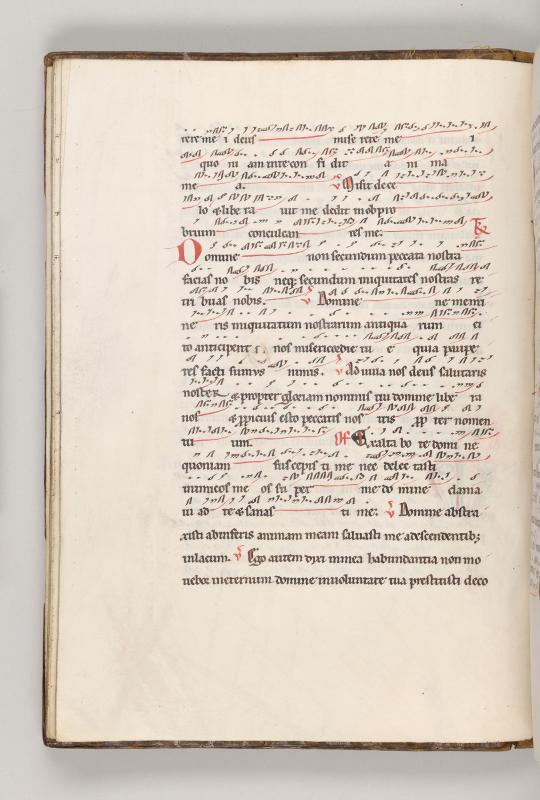 rere me i deus mise rere me i
quo ni am in te con fi dit a ni ma
me a. ℣ Misit de ce
lo & libe ra uit me dedit in obpro
brium conculcan tes me: Tr
Domine non secundum peccata nostra
facias no bis neq; secundum iniquitates nostras re
tri buas nobis. ℣ Domine ne memi
ne ris iniquitatum nostrarum antiqua rum ci
to anticipent nos misericordie tu e quia paupe
res facti sumus nimis. ℣ Adiuua nos deus salutaris
noster & propter gloriam nominis tui domine libe ra
nos & ppicius esto peccatis nos tris pp ter nomen
tu um. Of Exalta bo te domi ne
quoniam suscepis ti me nec delec tasti
inimicos me os su per me do mine clama
ui ad te & sanas ti me: ℣ Domine abstra
xisti ab inferis animam meam saluasti me a descendentib;
in lacum. ℣ Ego autem dixi in mea habundantia non mo
uebor in eternum domine in uoluntate tua prestitisti deco